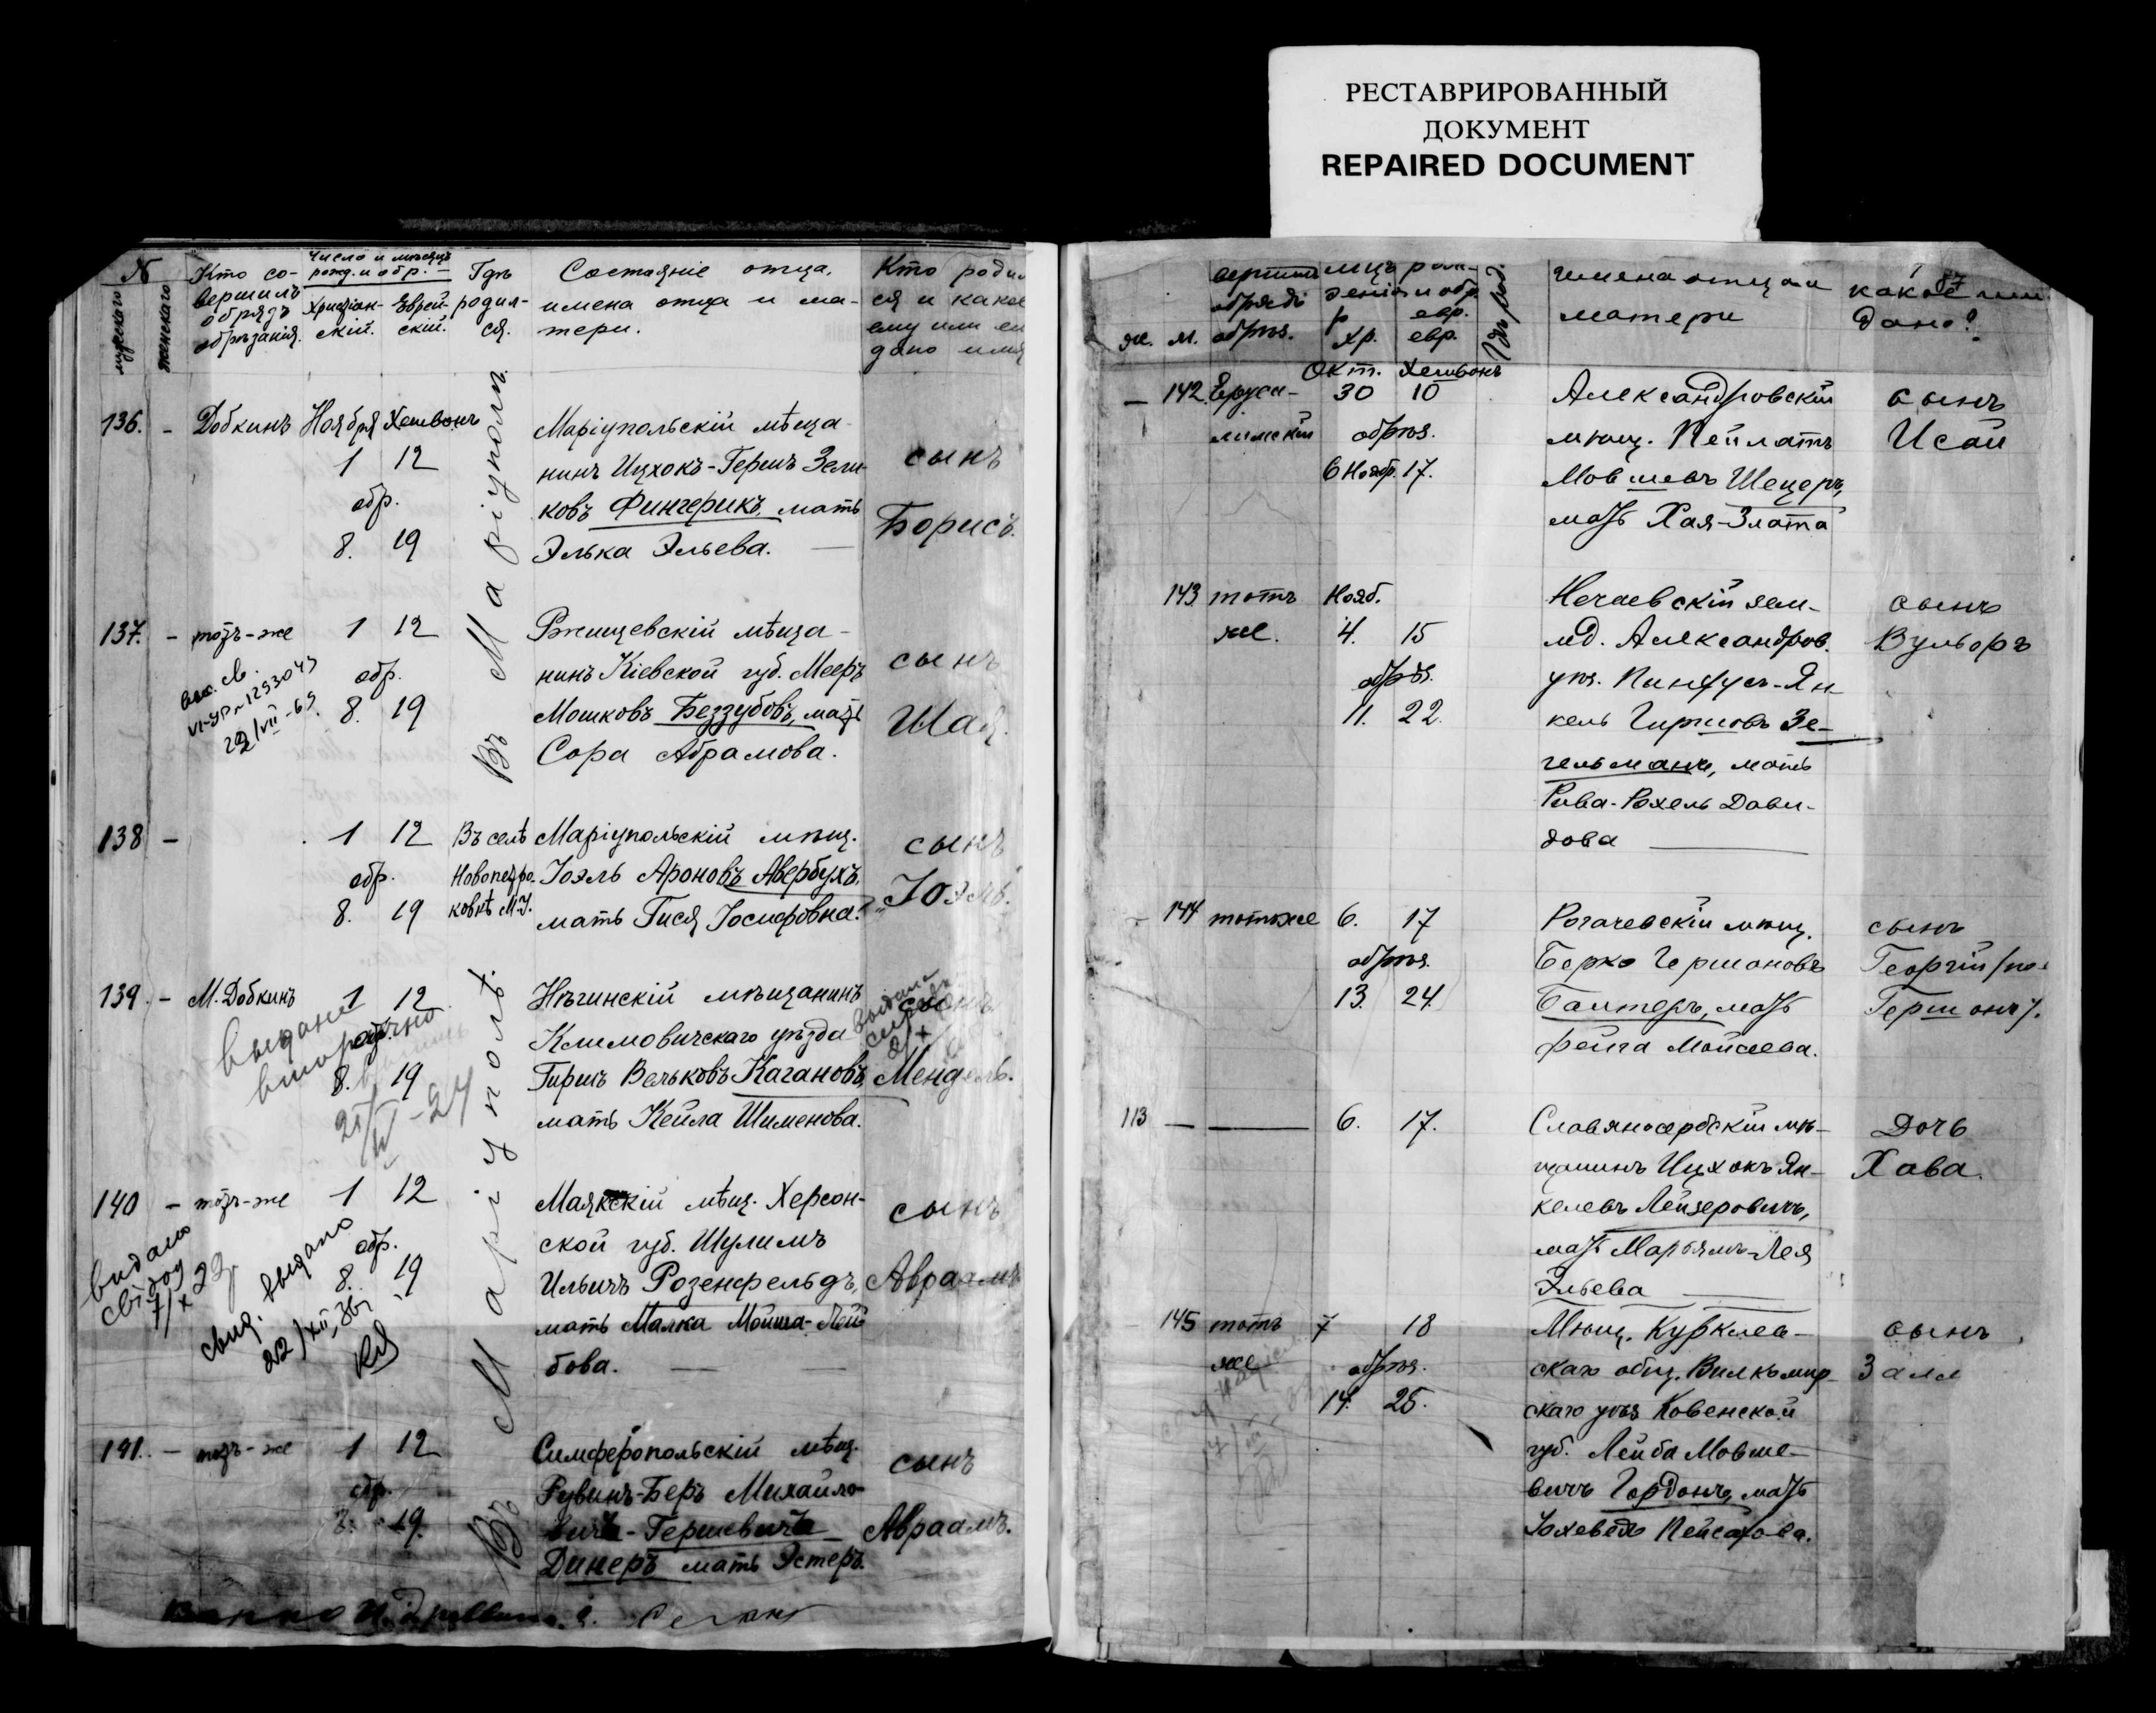 РЕСТАВРИРОВАННЫЙ
ДОКУМЕНТ
REPAIRED DOCUMENT
№
мужескаго
женскаго
Кто со-
вершилъ
обрядъ
обрѣзанія.
Число и мѣсяцъ
рожд. и обр.
Христіан-
скій.
Еврей-
скій.
Гдѣ
родил-
ся.
Состояніе отца,
имена отца и ма-
тери.
Кто роди
ся и какое
ему или ей
дано имя
136. - Добкинъ Ноября Хешвонъ
1 12
обр.
8. 19
Въ Маріуполѣ
Маріупольскій мѣща-
нинъ Ицхокъ-Гершъ Зели-
ковъ Фингерикъ, мать
Элька Эльева.
сынъ
Борисъ.
137. - тотъ-же 1 12
обр.
8. 19
22/VII-69
Ржищевскій мѣща-
нинъ Кіевской губ. Мееръ
Мошковъ Беззубовъ, мать
Сора Абрамова.
сынъ
Шая.
138 - 1 12
обр.
8. 19
Въ селѣ
Новопетро-
ковкѣ М.У.
Маріупольскій мѣщ.
Іоэль Ароновъ Авербухъ,
мать Гися Іосифовна.
сынъ
Іоэль.
139. - М. Добкинъ 1 12
обр.
8. 19
выдана
вторично
Въ Маріуполѣ.
мѣщанинъ
Климовичскаго уѣзда
Гиршъ Вельковъ Кагановъ,
мать Кейла Шименова.
сынъ
Мендель.
140 - тотъ-же 1 12
обр.
8. 19
видано
свідоц
7/X 22
свид. выдано
22/XII
Маякскій мѣщ. Херсон-
ской губ. Шулимъ
Ильичъ Розенфельдъ,
мать Малка Мойша-Лей-
бова.
сынъ
Авраамъ
141. - тотъ-же 1 12
обр.
8. 19.
Симферопольскій мѣщ.
Рувинъ-Беръ Михайло-
вичъ-Гершевичъ
Динеръ мать Эстеръ.
сынъ
Авраамъ.
ж. м.
вершил
обрядъ
обрѣз.
мцъ рож-
денія и обр.
хр. евр.
Гдѣ род.
имена отца и
матери
какое имя
дано?
Окт. Хешвонъ
142 Еруса-
лимскій
30 10
обрѣз.
6 Нояб. 17.
Александровскій
мѣщ. Пейлатъ
Мовшевъ Шецеръ,
мать Хая-Злата
сынъ
Исай
143 тотъ
же.
Нояб.
4. 15
обрѣз.
11. 22.
Нечаевскій зем-
лд. Александров.
уѣз. Пинхусъ-Ян-
кель Гиршовъ Зе-
гельманъ, мать
Рива-Рохель Дави-
дова
сынъ
Вульфъ
144 тотъже 6. 17
обрѣз.
13. 24.
Рогачевскій мѣщ.
Берко Гершоновъ
Балтеръ, мать
Фейга Мойсеева.
сынъ
Георгій
Гершонъ).
113 6. 17.
Славяносербскій мѣ-
щанинъ Ицхокъ Ян-
келевъ Лейзеровичъ,
мать Марьямъ-Лея
Эльева
Дочь
Хава.
145 тотъ
же
7 18
обрѣз.
14. 25.
Мѣщ. Курклев-
скаго общ. Вилкомир-
скаго уѣз Ковенской
губ. Лейба Мовше-
вичъ Гордонъ, мать
Іохеведъ Пейсахова.
сынъ